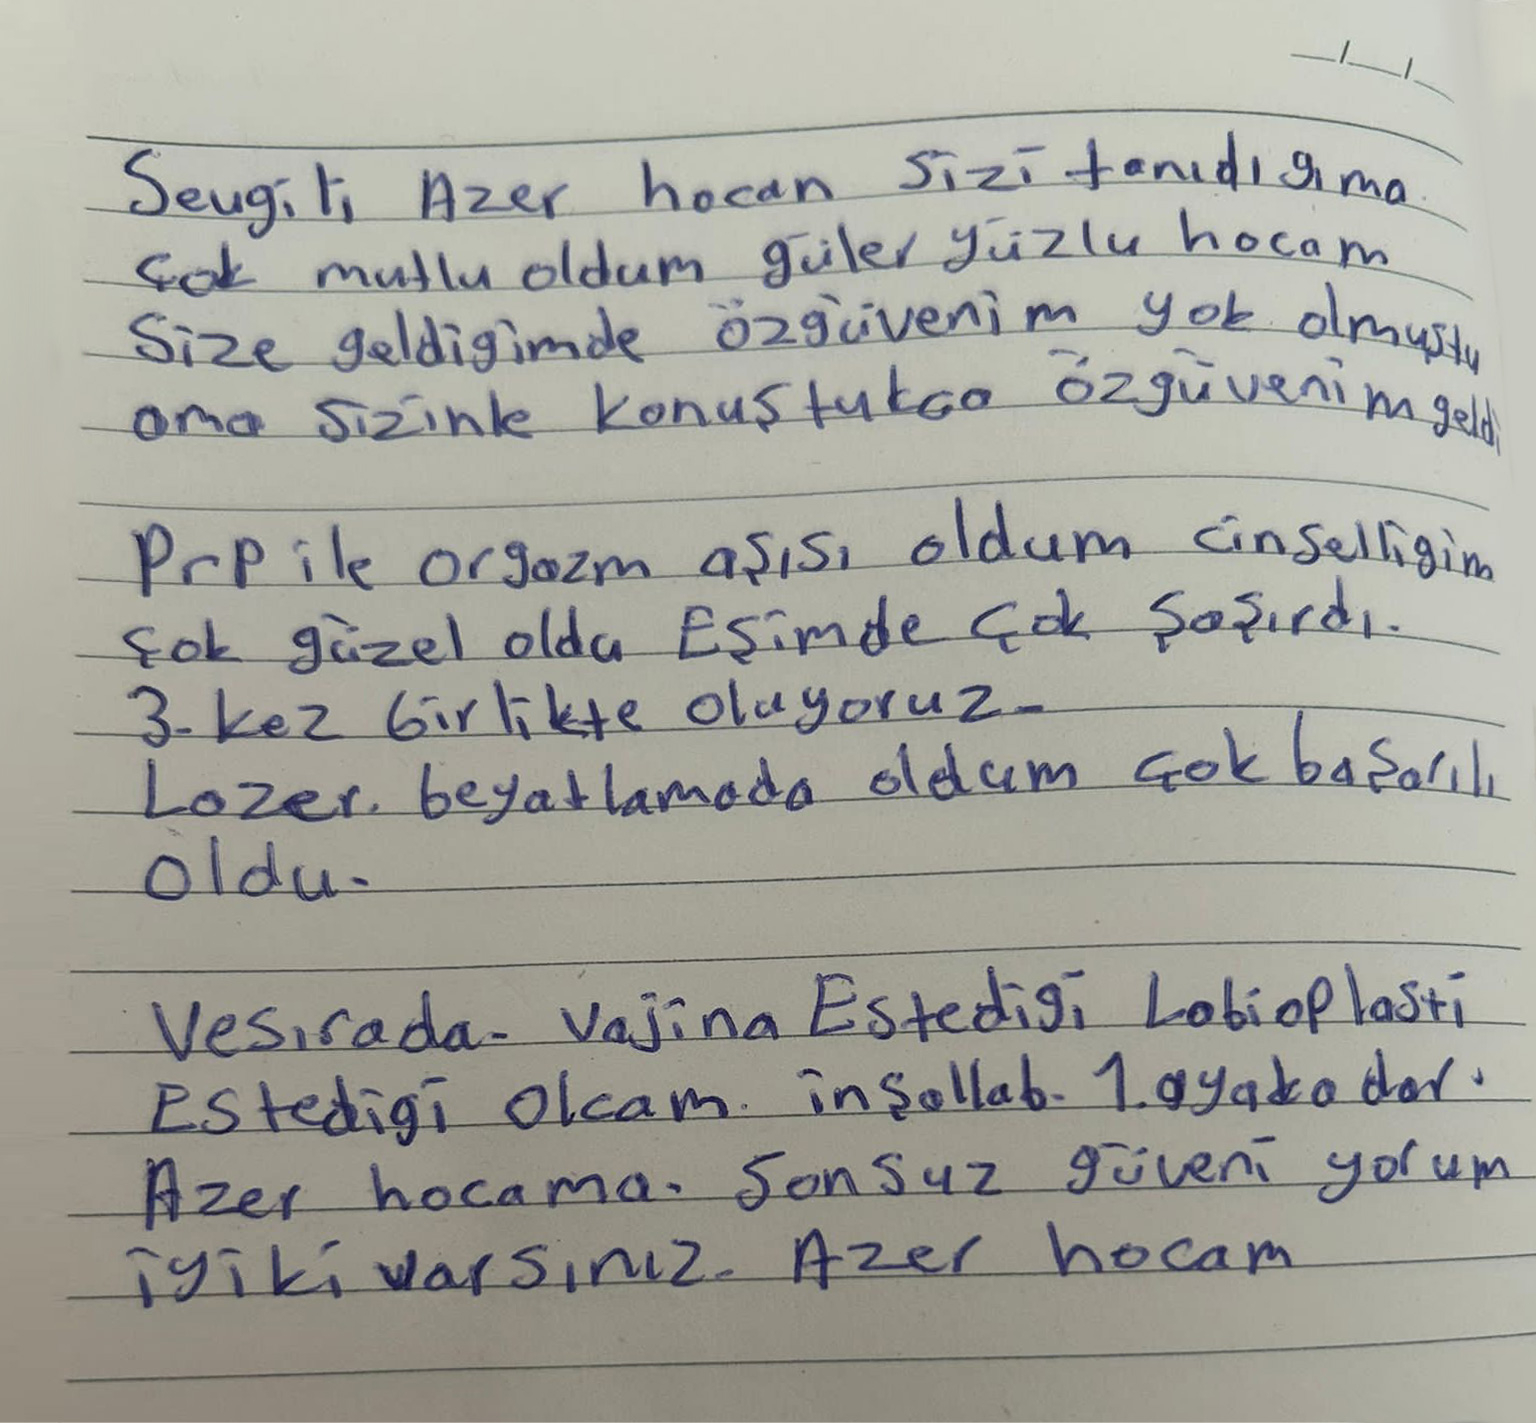 Sevgili Azer hocan sizi tanıdıgıma
çok mutlu oldum güler yüzlu hocam
Size geldigimde özgüvenim yok olmuştu
ama sizinle konuştukca özgüvenim geldi
Prp ile orgazm aşısı oldum cinselligim
çok güzel oldu Eşimde çok şaşırdı.
3-kez birlikte oluyoruz-
Lazer. beyatlamada oldum çok başarılı
oldu-
Vesırada- vajina Estedigi Labioplasti
Estedigi olcam. inşallab. 1.ayakadar.
Azer hocama. Sonsuz güveni yorum
iyiki varsınız- Azer hocam